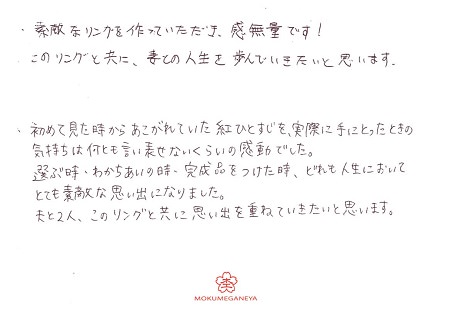 ・素敵なリングを作っていただき、感無量です！
このリングと共に、妻との人生を歩んでいきたいと思います。
・初めて見た時からあこがれていた紅ひとすじを、実際に手にとったときの
気持ちは何とも言い表せないくらいの感動でした。
選ぶ時・わかちあいの時・完成品をつけた時、どれも人生において
とても素敵な思い出になりました。
夫と2人、このリングと共に思い出を重ねていきたいと思います。
MOKUMEGANEYA